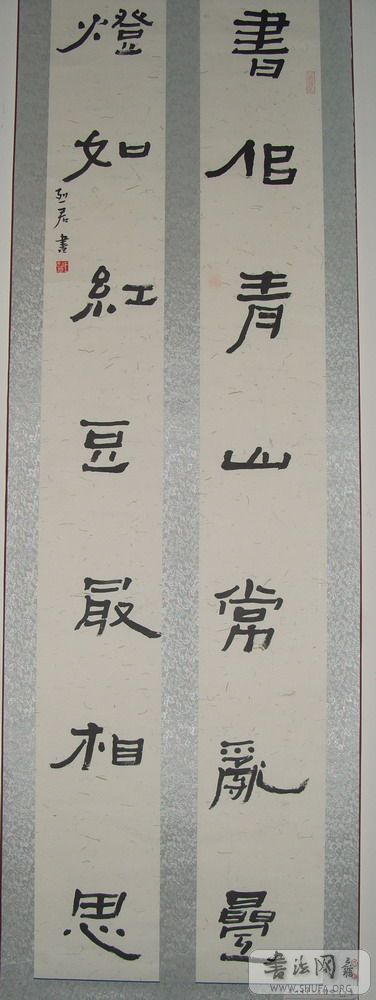 書似青山常亂疊
燈如紅豆最相思
烈君書
书法网
WWW.SHUFA.ORG